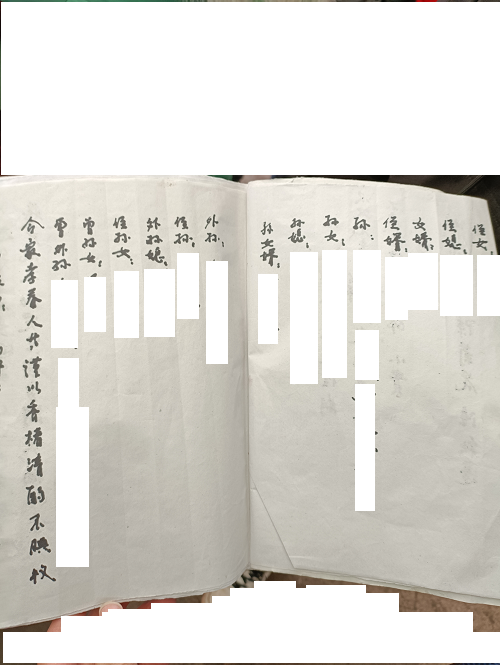 侄女:
侄媳:
女婿:
侄婿:
孙:
孙女:
孙媳:
孙女婿:
外孙:
侄孙:
外孙媳:
侄孙女:
曾孙女:
曾外孙:
合家孝眷人等谨以香楮清酌不腆